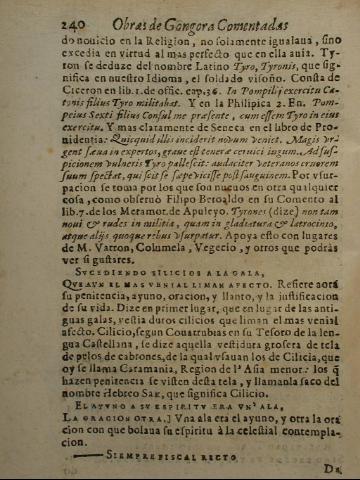 240 Obras de Gongora Comentadas
do nouicio en la Religion, no solamente igualaua, sino
excedia en virtud al mas perfecto que en ella auia. Ty-
ro se deduze del nombre Latino Tyro, Tyronis, que sig-
nifica en nuestro Idioma, el soldado visoño. Consta de
Ciceron en lib. 1. de offic. cap. 36. In Pompilij exercitu Ca-
tonis filius Tyro militabat. Y en la Philipica 2. En. Pom-
peius Sexti filius Consul me præsente, cum essem Tyro in eius
exercitu. Y mas claramente de Seneca en el libro de Pro-
uidentia: Quicquid illis inciderit nobum veniet. Magis vr-
gent sæua in expertos, graue est teneræ ceruici iugum. Ad sus-
picionem vulneris Tyro pallescit: audaciter veteranos cruorem
suum spectat, qui scit se sæpe vicisse post sanguinem. Por vsur-
pacion se toma por los que son nueuos en otra qualquier
cosa, como obseruò Filipo Beroaldo en su Comento al
lib. 7. de los Metamor. de Apuleyo. Tyrones (dize) non tam
noui & rudes in militia, quam in gladiatura & latrocinio,
atque alijs quoque rebus vsurpatur. Apoya esto con lugares
de M. Varron, Columela, Vegecio, y otros que podràs
ver si gustares.
SVCEDIENDO SILICIOS A LA GALA,
QVE AVN EL MAS VENIAL LIMAN AFECTO. Refiere aora
su penitencia, ayuno, oracion, y llanto, y la justificacion
de su vida. Dize en primer lugar, que en lugar de las anti-
guas galas, vestia duros cilicios que liman el mas venial
afecto. Cilicio, segun Couarrubias en su Tesoro de la len-
gua Castellana, se dize aquella vestidura grosera de tela
de pelos de cabrones, de la qual vsauan los de Cilicia, que
oy se llama Caramania, Region de l'Asia menor: los q̃
hazen penitencia se visten desta tela, y llamanla saco del
nombre Hebreo Sak, que significa Cilicio.
EL AYVNO A SV ESPIRITV ERA VN'ALA,
LA ORACION OTRA.] Vna ala era el ayuno, y otra la ora-
cion con que bolaua su espiritu à la celestial contempla-
cion.
SIEMPRE FISCAL RECTO